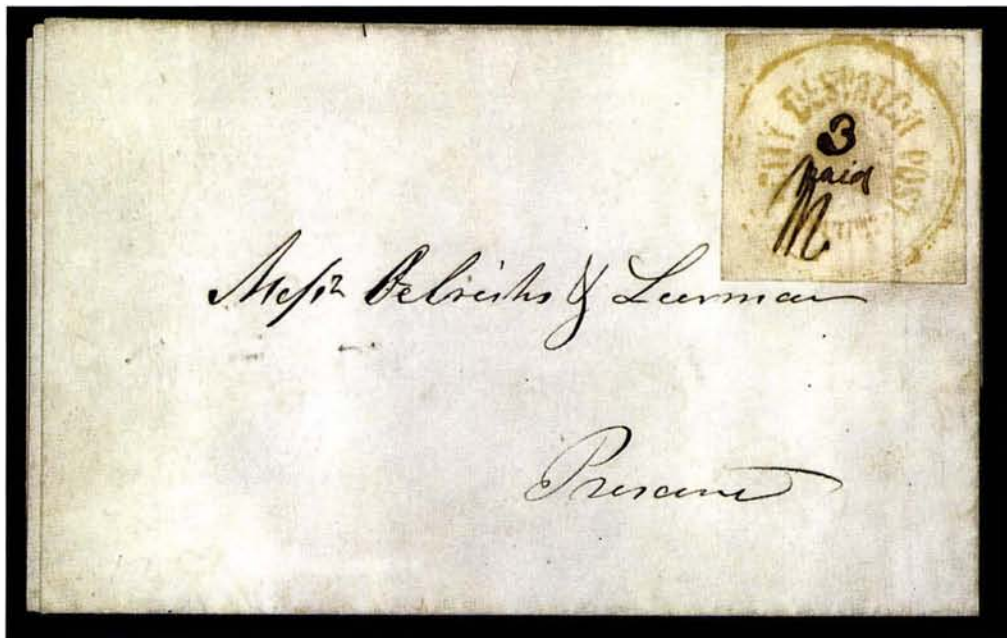 CITY DESPATCH POST
3
paid
M
Messrs Oelrichs & Lurman
Present